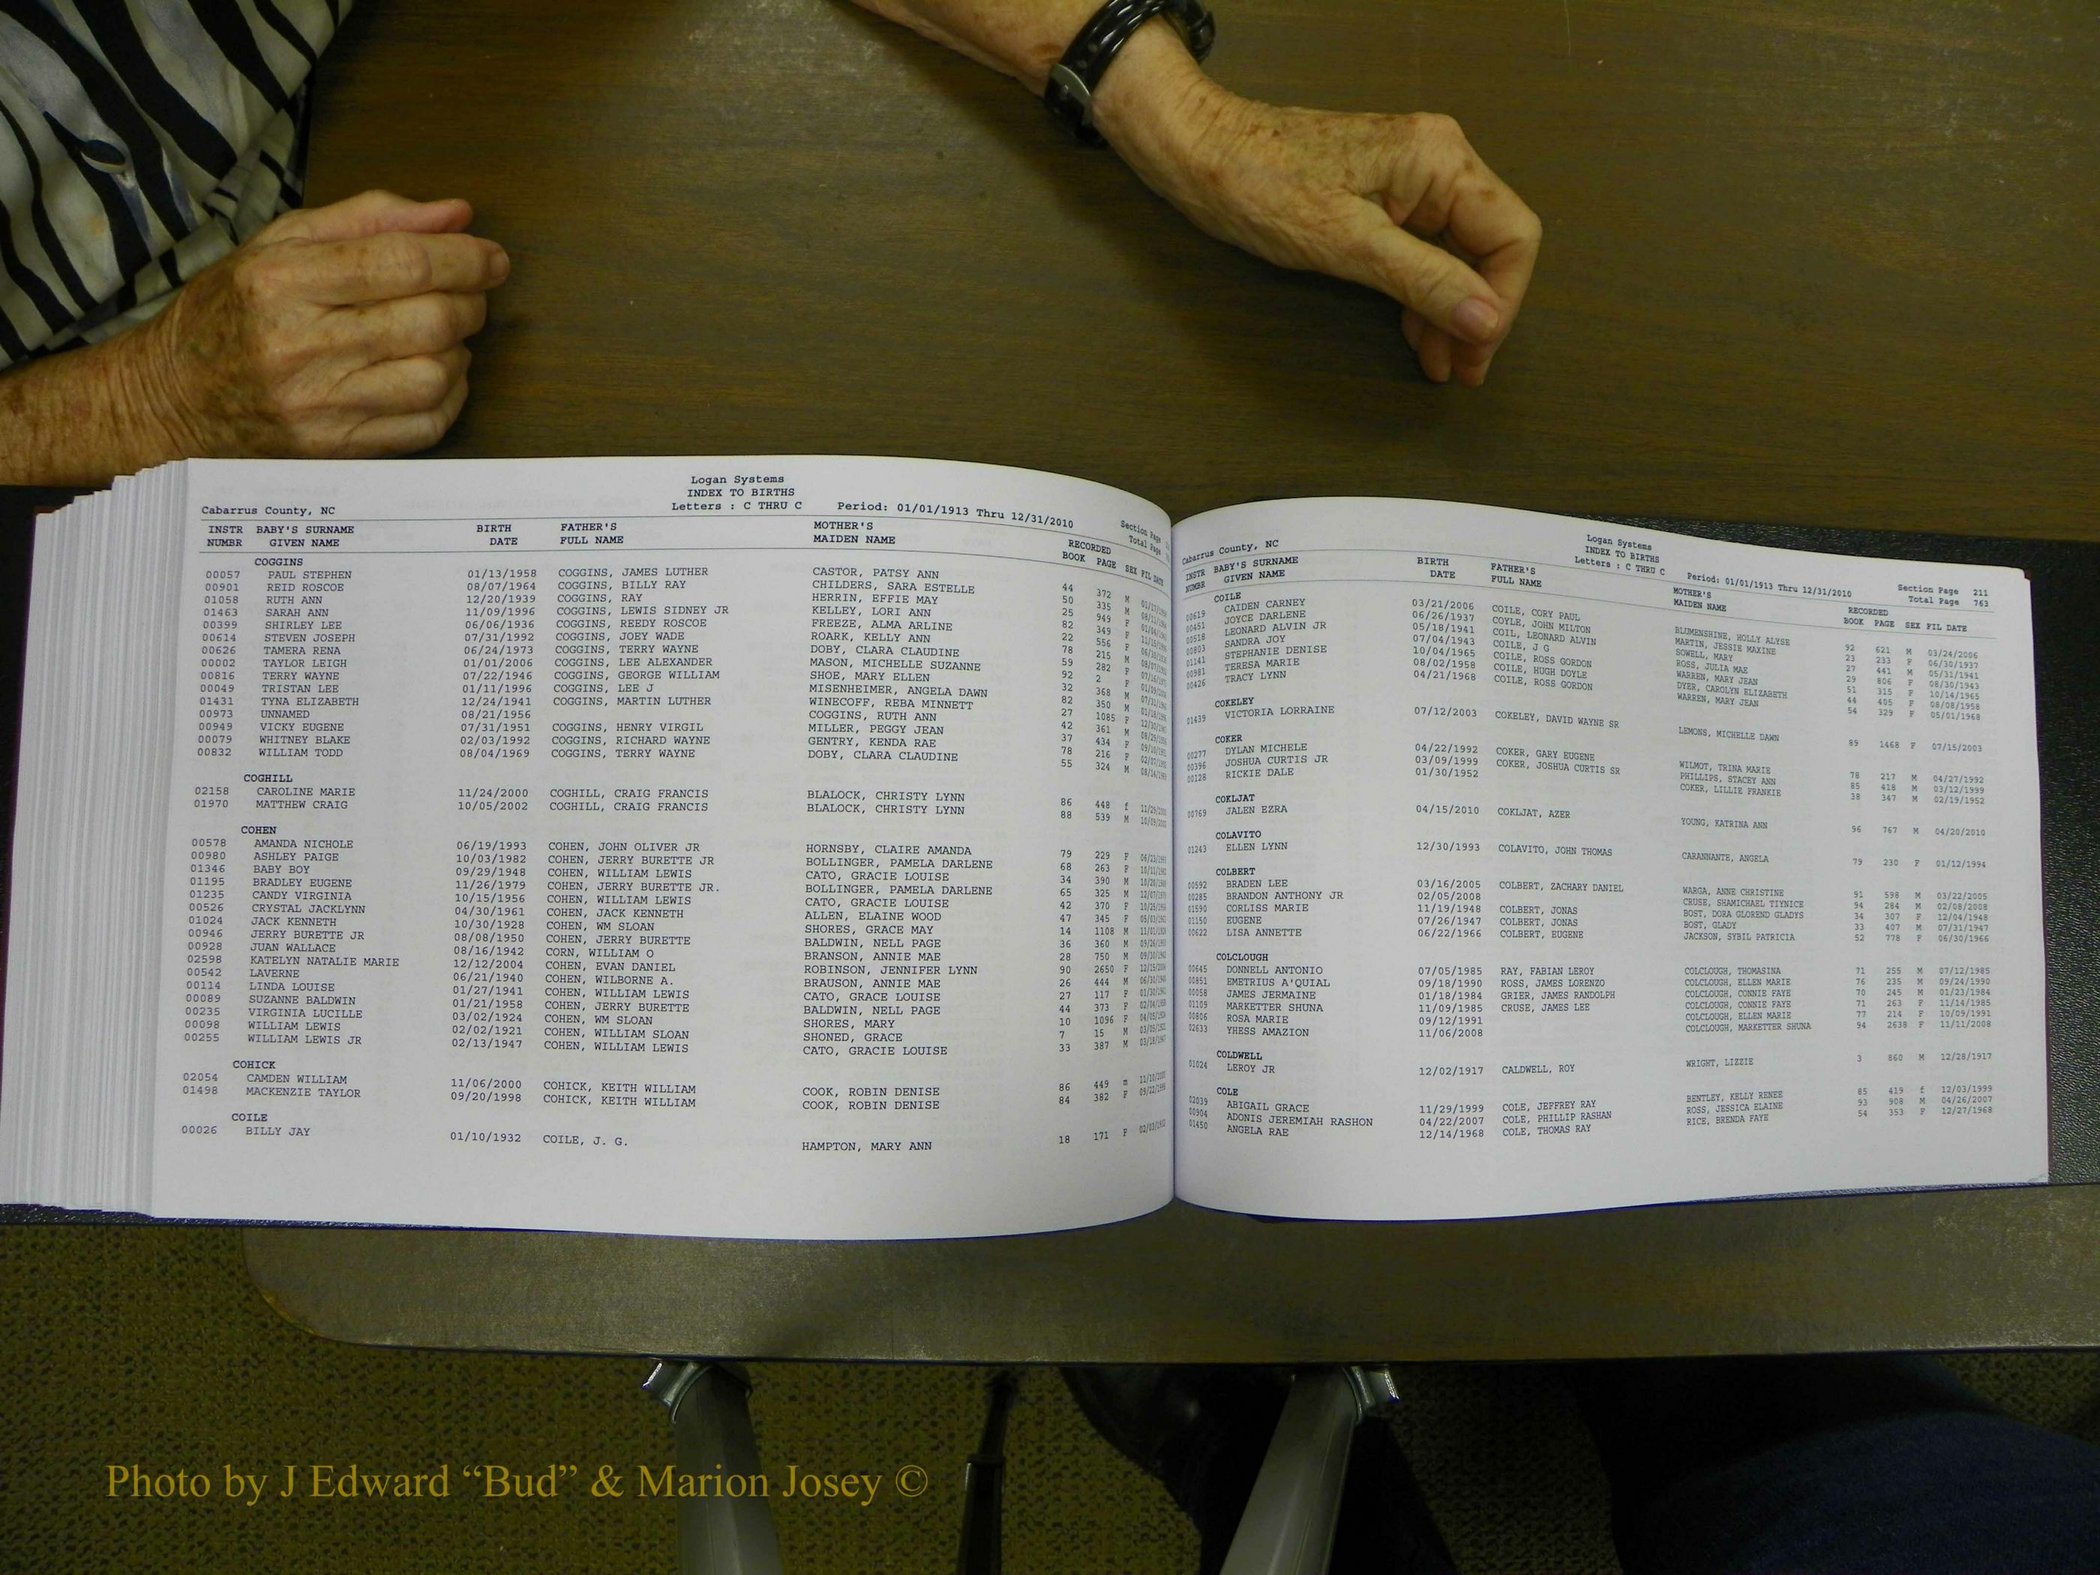 Logan Systems
INDEX TO BIRTHS
Cabarrus County, NC Letters : C THRU C Period: 01/01/1913 Thru 12/31/2010
Section Page
Total Page
INSTR BABY'S SURNAME BIRTH FATHER'S MOTHER'S RECORDED
NUMBR GIVEN NAME DATE FULL NAME MAIDEN NAME BOOK PAGE SEX FIL DATE
COGGINS
00057 PAUL STEPHEN 01/13/1958 COGGINS, JAMES LUTHER CASTOR, PATSY ANN 44 372 M
00901 REID ROSCOE 08/07/1964 COGGINS, BILLY RAY CHILDERS, SARA ESTELLE 50 335 M
01058 RUTH ANN 12/20/1939 COGGINS, RAY HERRIN, EFFIE MAY 25 949 F
01463 SARAH ANN 11/09/1996 COGGINS, LEWIS SIDNEY JR KELLEY, LORI ANN 82 349 F
00399 SHIRLEY LEE 06/06/1936 COGGINS, REEDY ROSCOE FREEZE, ALMA ARLINE 22 556 F
00614 STEVEN JOSEPH 07/31/1992 COGGINS, JOEY WADE ROARK, KELLY ANN 78 215 M
00626 TAMERA RENA 06/24/1973 COGGINS, TERRY WAYNE DOBY, CLARA CLAUDINE 59 282 F
00002 TAYLOR LEIGH 01/01/2006 COGGINS, LEE ALEXANDER MASON, MICHELLE SUZANNE 92 2 F
00816 TERRY WAYNE 07/22/1946 COGGINS, GEORGE WILLIAM SHOE, MARY ELLEN 32 368 M
00049 TRISTAN LEE 01/11/1996 COGGINS, LEE J MISENHEIMER, ANGELA DAWN 82 350 M
01431 TYNA ELIZABETH 12/24/1941 COGGINS, MARTIN LUTHER WINECOFF, REBA MINNETT 27 1085 F
00973 UNNAMED 08/21/1956 COGGINS, RUTH ANN 42 361 M
00949 VICKY EUGENE 07/31/1951 COGGINS, HENRY VIRGIL MILLER, PEGGY JEAN 37 434 F
00079 WHITNEY BLAKE 02/03/1992 COGGINS, RICHARD WAYNE GENTRY, KENDA RAE 78 216 F
00832 WILLIAM TODD 08/04/1969 COGGINS, TERRY WAYNE DOBY, CLARA CLAUDINE 55 324 M
COGHILL
02158 CAROLINE MARIE 11/24/2000 COGHILL, CRAIG FRANCIS BLALOCK, CHRISTY LYNN 86 448 f
01970 MATTHEW CRAIG 10/05/2002 COGHILL, CRAIG FRANCIS BLALOCK, CHRISTY LYNN 88 539 M
COHEN
00578 AMANDA NICHOLE 06/19/1993 COHEN, JOHN OLIVER JR HORNSBY, CLAIRE AMANDA 79 229 F
00980 ASHLEY PAIGE 10/03/1982 COHEN, JERRY BURETTE JR BOLLINGER, PAMELA DARLENE 68 263 F
01346 BABY BOY 09/29/1948 COHEN, WILLIAM LEWIS CATO, GRACIE LOUISE 34 390 M
01195 BRADLEY EUGENE 11/26/1979 COHEN, JERRY BURETTE JR. BOLLINGER, PAMELA DARLENE 65 325 M
01235 CANDY VIRGINIA 10/15/1956 COHEN, WILLIAM LEWIS CATO, GRACIE LOUISE 42 370 F
00526 CRYSTAL JACKLYNN 04/30/1961 COHEN, JACK KENNETH ALLEN, ELAINE WOOD 47 345 F
01024 JACK KENNETH 10/30/1928 COHEN, WM SLOAN SHORES, GRACE MAY 14 1108 M
00946 JERRY BURETTE JR 08/08/1950 COHEN, JERRY BURETTE BALDWIN, NELL PAGE 36 360 M
00928 JUAN WALLACE 08/16/1942 CORN, WILLIAM O BRANSON, ANNIE MAE 28 750 M
02598 KATELYN NATALIE MARIE 12/12/2004 COHEN, EVAN DANIEL ROBINSON, JENNIFER LYNN 90 2650 F
00542 LAVERNE 06/21/1940 COHEN, WILBORNE A. BRAUSON, ANNIE MAE 26 444 M
00114 LINDA LOUISE 01/27/1941 COHEN, WILLIAM LEWIS CATO, GRACE LOUISE 27 117 F
00089 SUZANNE BALDWIN 01/21/1958 COHEN, JERRY BURETTE BALDWIN, NELL PAGE 44 373 F
00235 VIRGINIA LUCILLE 03/02/1924 COHEN, WM SLOAN SHORES, MARY 10 1096 F
00098 WILLIAM LEWIS 02/02/1921 COHEN, WILLIAM SLOAN SHONED, GRACE 7 15 M
00255 WILLIAM LEWIS JR 02/13/1947 COHEN, WILLIAM LEWIS CATO, GRACIE LOUISE 33 387 M
COHICK
02054 CAMDEN WILLIAM 11/06/2000 COHICK, KEITH WILLIAM COOK, ROBIN DENISE 86 449 m
01498 MACKENZIE TAYLOR 09/20/1998 COHICK, KEITH WILLIAM COOK, ROBIN DENISE 84 382 F
COILE
00026 BILLY JAY 01/10/1932 COILE, J. G. HAMPTON, MARY ANN 18 171 F
Logan Systems
INDEX TO BIRTHS
Cabarrus County, NC Letters : C THRU C Period: 01/01/1913 Thru 12/31/2010
Section Page 211
Total Page 763
INSTR BABY'S SURNAME BIRTH FATHER'S MOTHER'S RECORDED
NUMBR GIVEN NAME DATE FULL NAME MAIDEN NAME BOOK PAGE SEX FIL DATE
COILE
00619 CAIDEN CARNEY 03/21/2006 COILE, CORY PAUL BLUMENSHINE, HOLLY ALYSE 92 621 M 03/24/2006
00451 JOYCE DARLENE 06/26/1937 COYLE, JOHN MILTON MARTIN, JESSIE MAXINE 23 233 F 06/30/1937
00518 LEONARD ALVIN JR 05/18/1941 COIL, LEONARD ALVIN SOWELL, MARY 27 441 M 05/31/1941
00803 SANDRA JOY 07/04/1943 COILE, J G ROSS, JULIA MAE 29 806 F 08/30/1943
01141 STEPHANIE DENISE 10/04/1965 COILE, ROSS GORDON WARREN, MARY JEAN 51 315 F 10/14/1965
00981 TERESA MARIE 08/02/1958 COILE, HUGH DOYLE DYER, CAROLYN ELIZABETH 44 405 F 08/08/1958
00426 TRACY LYNN 04/21/1968 COILE, ROSS GORDON WARREN, MARY JEAN 54 329 F 05/01/1968
COKELEY
01439 VICTORIA LORRAINE 07/12/2003 COKELEY, DAVID WAYNE SR LEMONS, MICHELLE DAWN 89 1468 F 07/15/2003
COKER
00277 DYLAN MICHELE 04/22/1992 COKER, GARY EUGENE WILMOT, TRINA MARIE 78 217 M 04/27/1992
00396 JOSHUA CURTIS JR 03/09/1999 COKER, JOSHUA CURTIS SR PHILLIPS, STACEY ANN 85 418 M 03/12/1999
00128 RICKIE DALE 01/30/1952 COKER, LILLIE FRANKIE 38 347 M 02/19/1952
COKLJAT
00769 JALEN EZRA 04/15/2010 COKLJAT, AZER YOUNG, KATRINA ANN 96 767 M 04/20/2010
COLAVITO
01243 ELLEN LYNN 12/30/1993 COLAVITO, JOHN THOMAS CARANNANTE, ANGELA 79 230 F 01/12/1994
COLBERT
00592 BRADEN LEE 03/16/2005 COLBERT, ZACHARY DANIEL WARGA, ANNE CHRISTINE 91 598 M 03/22/2005
00285 BRANDON ANTHONY JR 02/05/2008 CRUSE, SHAMICHAEL TIYNICE 94 284 M 02/08/2008
01590 CORLISS MARIE 11/19/1948 COLBERT, JONAS BOST, DORA GLOREND GLADYS 34 307 F 12/04/1948
01150 EUGENE 07/26/1947 COLBERT, JONAS BOST, GLADY 33 407 M 07/31/1947
00622 LISA ANNETTE 06/22/1966 COLBERT, EUGENE JACKSON, SYBIL PATRICIA 52 778 F 06/30/1966
COLCLOUGH
00645 DONNELL ANTONIO 07/05/1985 RAY, FABIAN LEROY COLCLOUGH, THOMASINA 71 255 M 07/12/1985
00851 EMETRIUS A'QUIAL 09/18/1990 ROSS, JAMES LORENZO COLCLOUGH, ELLEN MARIE 76 235 M 09/24/1990
00058 JAMES JERMAINE 01/18/1984 GRIER, JAMES RANDOLPH COLCLOUGH, CONNIE FAYE 70 245 M 01/23/1984
01109 MARKETTER SHUNA 11/09/1985 CRUSE, JAMES LEE COLCLOUGH, CONNIE FAYE 71 263 F 11/14/1985
00806 ROSA MARIE 09/12/1991 COLCLOUGH, ELLEN MARIE 77 214 F 10/09/1991
02633 YHESS AMAZION 11/06/2008 COLCLOUGH, MARKETTER SHUNA 94 2638 F 11/11/2008
COLDWELL
01024 LEROY JR 12/02/1917 CALDWELL, ROY WRIGHT, LIZZIE 3 860 M 12/28/1917
COLE
02039 ABIGAIL GRACE 11/29/1999 COLE, JEFFREY RAY BENTLEY, KELLY RENEE 85 419 f 12/03/1999
00904 ADONIS JEREMIAH RASHON 04/22/2007 COLE, PHILLIP RASHAN ROSS, JESSICA ELAINE 93 908 M 04/26/2007
01450 ANGELA RAE 12/14/1968 COLE, THOMAS RAY RICE, BRENDA FAYE 54 353 F 12/27/1968
Photo by J Edward “Bud” & Marion Josey ©